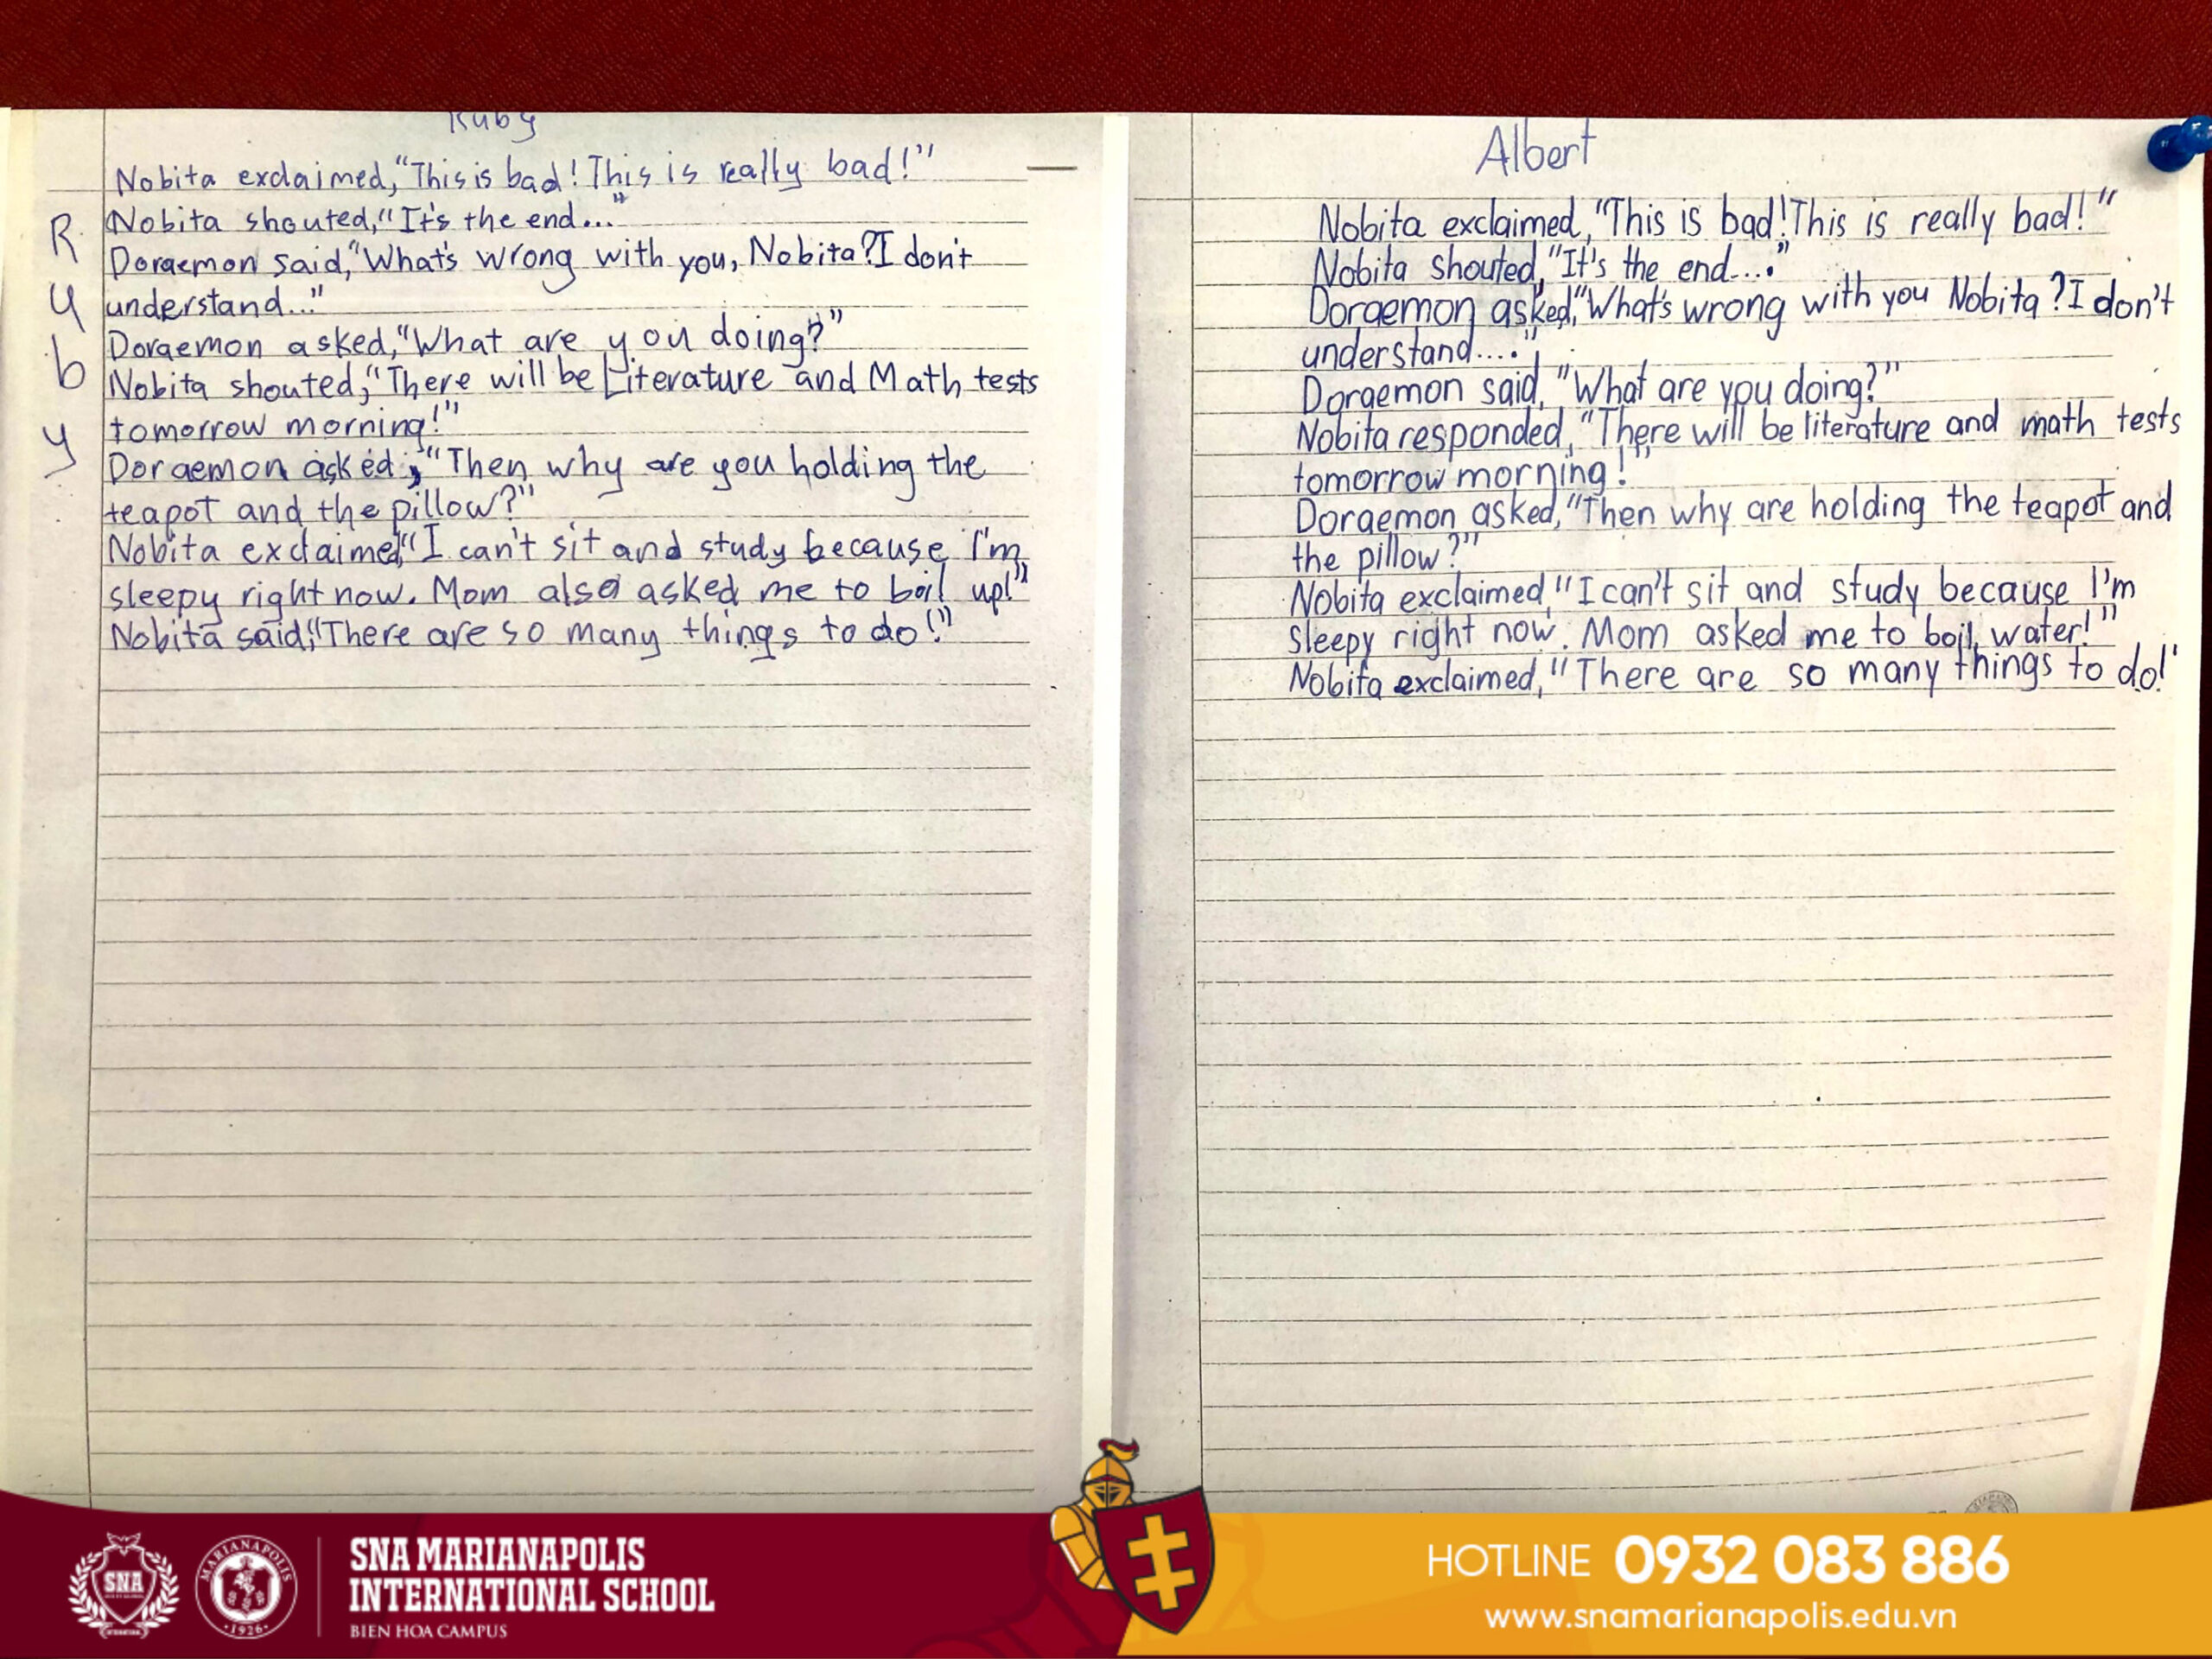 Ruby
Nobita exclaimed, "This is bad! This is really bad!"
Nobita shouted, "It's the end..."
Doraemon said, "What's wrong with you, Nobita? I don't
understand..."
Doraemon asked, "What are you doing?"
Nobita shouted, "There will be Literature and Math tests
tomorrow morning!"
Doraemon asked, "Then why are you holding the
teapot and the pillow?"
Nobita exclaimed, "I can't sit and study because I'm
sleepy right now. Mom also asked me to boil up!"
Nobita said, "There are so many things to do!"
R
u
b
y
Albert
Nobita exclaimed, "This is bad! This is really bad!"
Nobita shouted, "It's the end...."
Doraemon asked, "What's wrong with you Nobita? I don't
understand...."
Doraemon said, "What are you doing?"
Nobita responded, "There will be literature and math tests
tomorrow morning!"
Doraemon asked, "Then why are holding the teapot and
the pillow?"
Nobita exclaimed, "I can't sit and study because I'm
sleepy right now. Mom asked me to boil water!"
Nobita exclaimed, "There are so many things to do!'
SNA
MARIANAPOLIS
•1926•
SNA MARIANAPOLIS
INTERNATIONAL SCHOOL
BIEN HOA CAMPUS
HOTLINE 0932 083 886
www.snamarianapolis.edu.vn